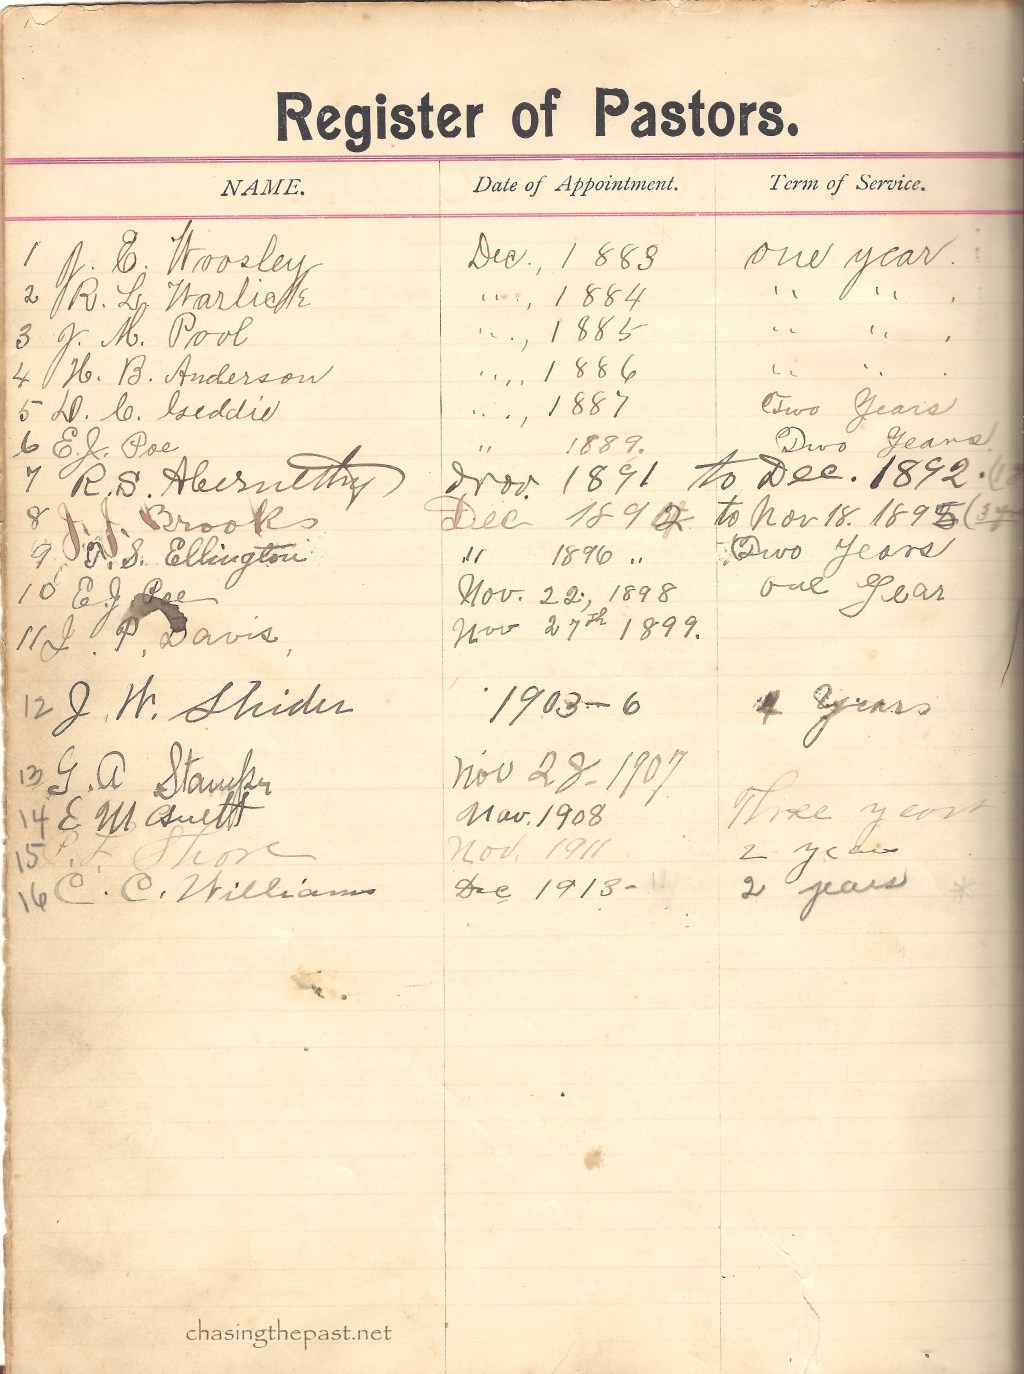 Register of Pastors.
NAME. Date of Appointment. Term of Service.
1 J. E. Woosley Dec., 1883 one year.
2 R. L. Warlick ″ ., 1884 ″ ″ .
3 J. M. Pool ″ ., 1885 ″ ″ .
4 H. B. Anderson ″ ., 1886 ″ ″ .
5 D. C. Geddie ″ ., 1887 Two Years
6 E. J. Poe ″ 1889. Two Years
7 R. S. Abernethy Nov. 1891 to Dec. 1892.
8 J. J. Brooks Dec 1892 to Nov 18. 1895
9 S. Ellington ″ 1896 ″ Two Years
10 E J Poe Nov. 22, 1898 one Year
11 J. P. Davis, Nov 27th 1899.
12 J. W. Strider 1903-6 4 Years
13 G. A Stamper Nov 28-1907
14 E M Nov. 1908 Three years
15 Shore Nov. 1911 2 years
16 C. C. Williams Dec 1913- 2 years *
chasingthepast.net